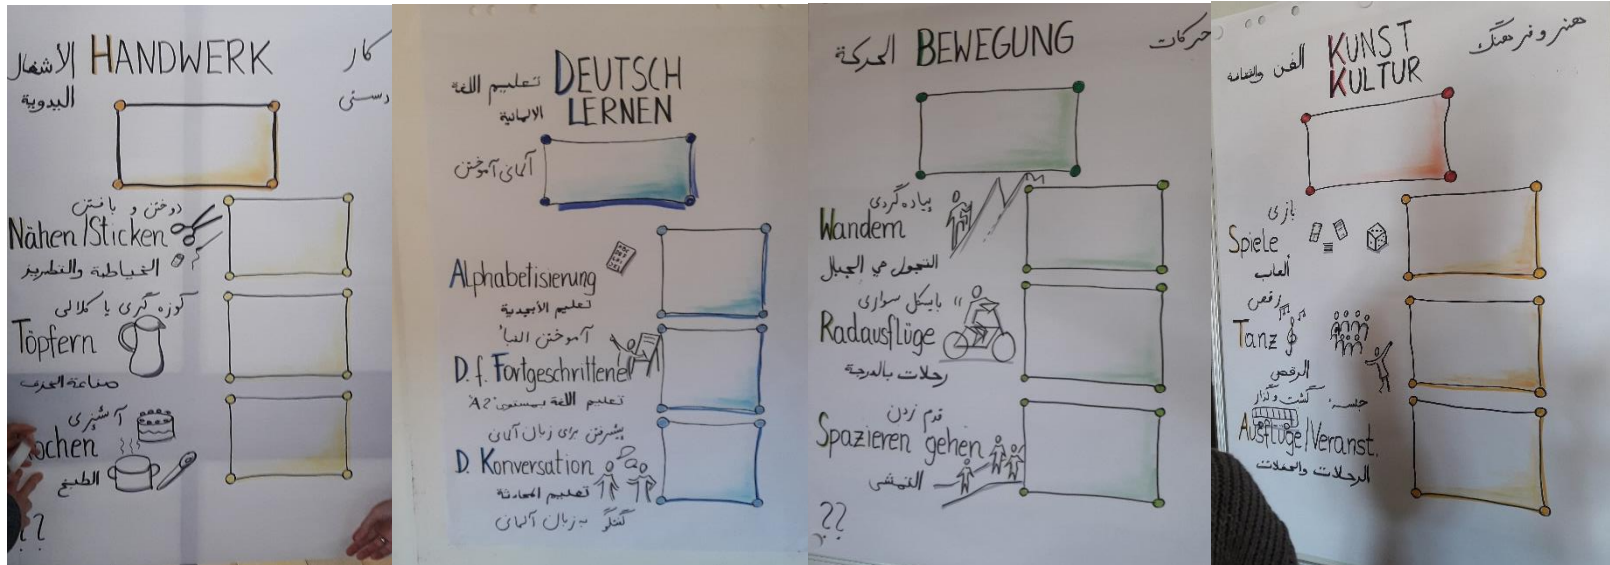 الاشغال HANDWERK کار
اليدوية دستی
دوختن و بافتن
Nähen/Sticken
الخياطة والتطريز
کوزه گری یا کلالی
Töpfern
صناعة الخزف
آشپزی
ochen
الطبخ
??
تعليم اللغة DEUTSCH
الالمانية LERNEN
آلمانی آموختن
Alphabetisierung
تعليم الأبجدية
آموختن الفبا
D. f. Fortgeschrittene
تعليم اللغة بمستوى A2
پیشرفتن برای زبان آلمانی
D. Konversation
تعليم المحادثة
گفتگو به زبان آلمانی
الحركة BEWEGUNG حرکات
پیاده گردی
Wandern
التجول في الجبال
بایسکل سواری
Radausflüge
رحلات بالدرجة
قدم زدن
Spazieren gehen
التمشي
??
الفن والثقافة KUNST هنر و فرهنگ
KULTUR
بازی
Spiele
العاب
رقص
Tanz
الرقص
گشت وگذار
Ausflüge/Veranst.
الرحلات والحفلات